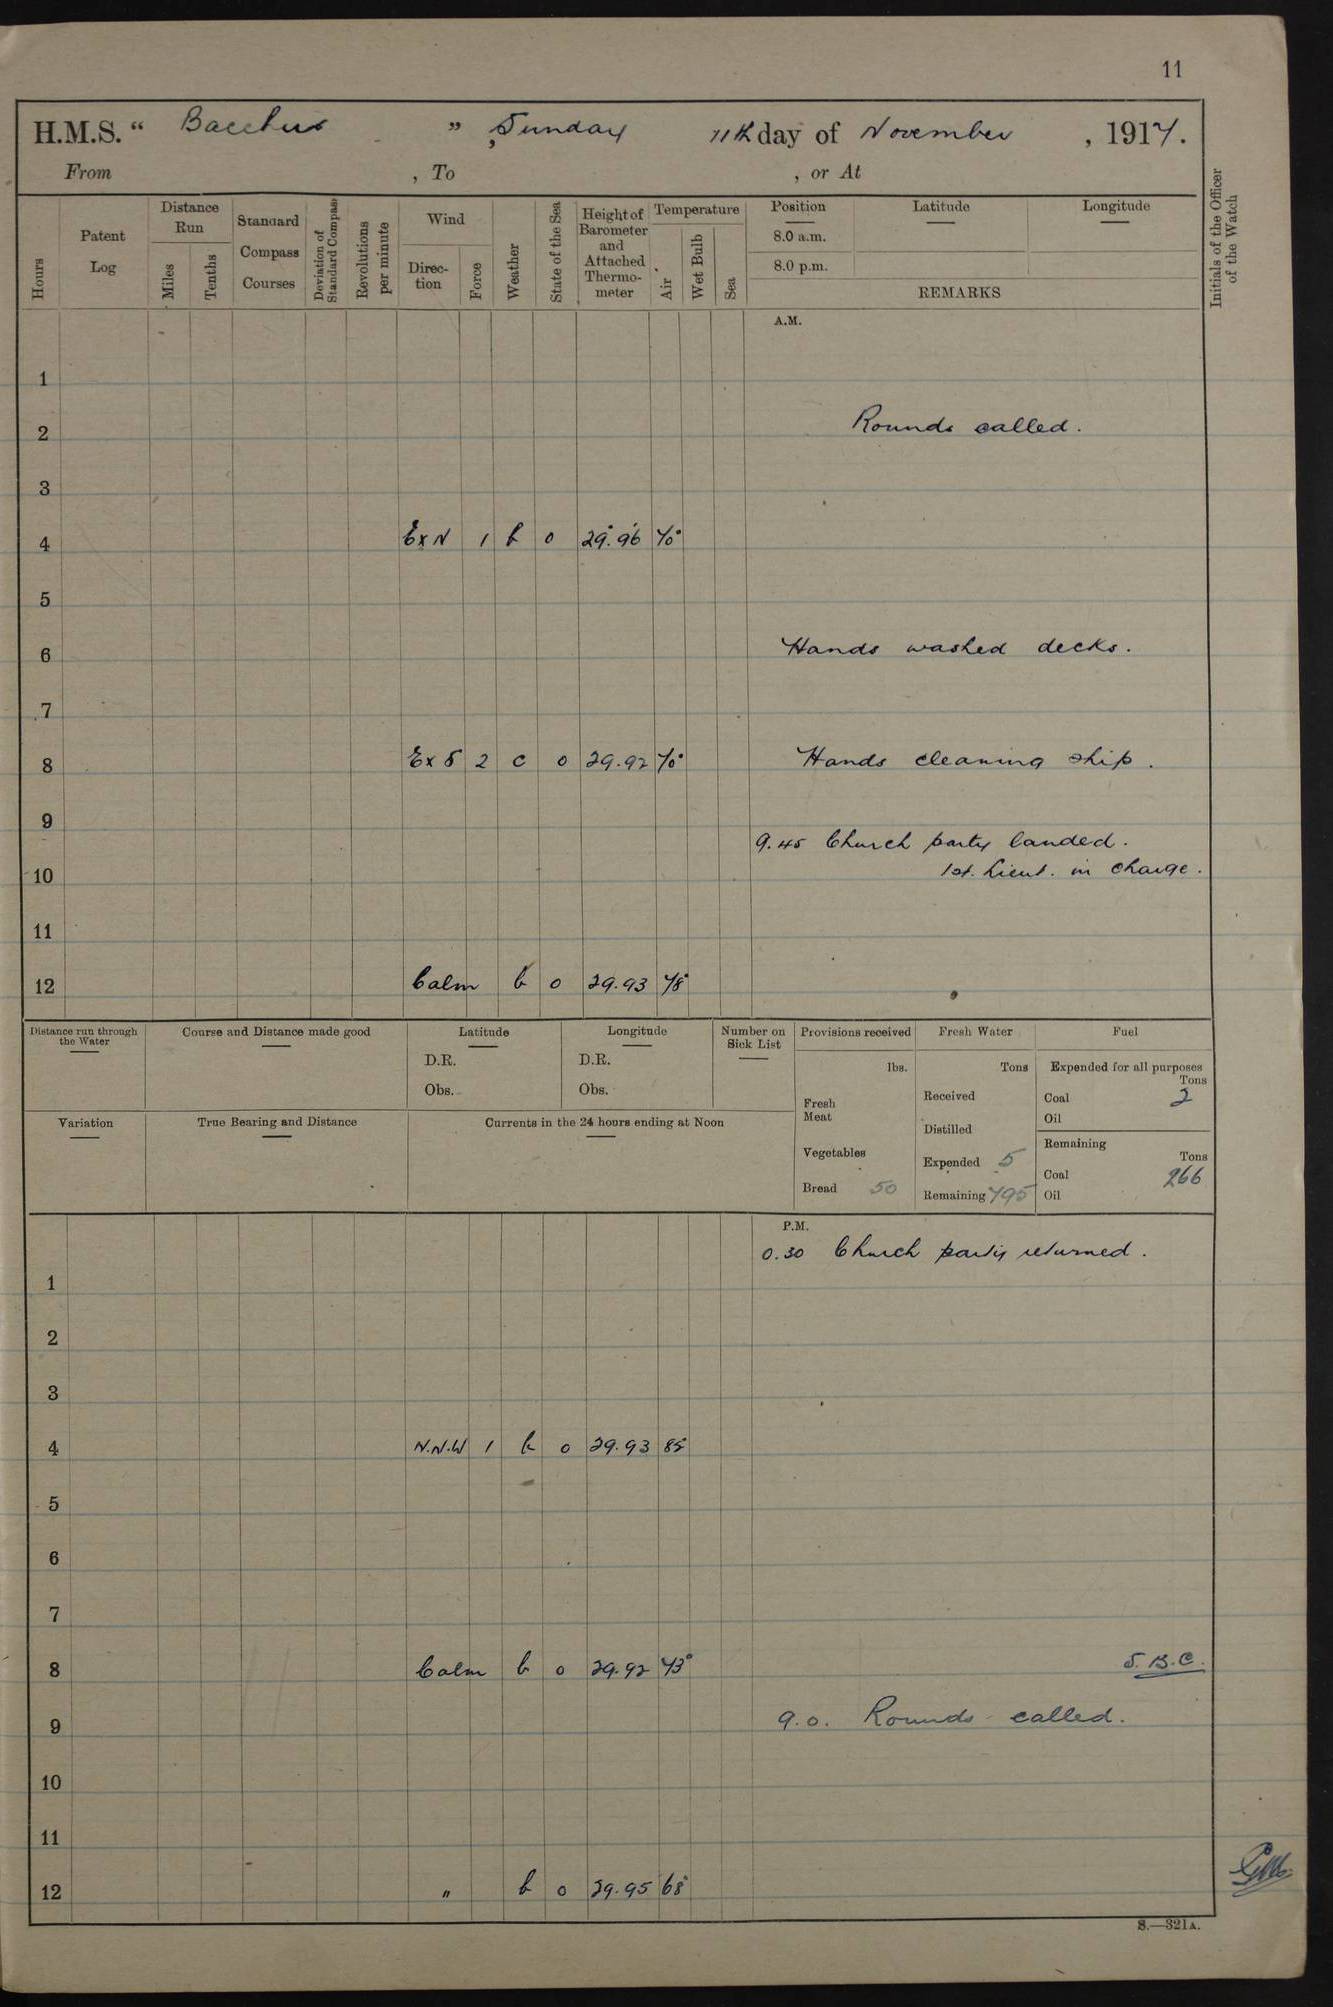 11
H.M.S. “ Bacchus ” , Sunday 11th day of November , 1917.
From , To , or At
Hours
Patent Log
Distance Run
Miles
Tenths
Standard Compass Courses
Deviation of Standard Compass
Revolutions per minute
Wind
Direc-tion
Force
Weather
State of the Sea
Height of Barometer and Attached Thermo-meter
Temperature
Air
Wet Bulb
Sea
Position
8.0 a.m.
8.0 p.m.
Latitude
Longitude
REMARKS
Initials of the Officer of the Watch
A.M.
1
2 Rounds called.
3
4 E x N 1 b 0 29.96 70°
5
6 Hands washed decks.
7
8 E x S 2 c 0 29.92 70° Hands cleaning ship.
9
9.45 Church party landed.
10 1st. Lieut. in charge.
11
12 Calm b 0 29.93 78°
Distance run through the Water
Course and Distance made good
Latitude
D.R.
Obs.
Longitude
D.R.
Obs.
Number on Sick List
Provisions received
lbs.
Fresh Meat
Vegetables
Bread 50
Fresh Water
Tons
Received
Distilled
Expended 5
Remaining 795
Fuel
Expended for all purposes
Tons
Coal 2
Oil
Remaining
Tons
Coal 266
Oil
Variation
True Bearing and Distance
Currents in the 24 hours ending at Noon
P.M.
0.30 Church party returned.
1
2
3
4 N.N.W 1 b 0 29.93 85°
5
6
7
8 Calm b 0 29.92 73° S.B.C.
9 9.0. Rounds called.
10
11
12 " b 0 29.95 68°
S.—321A.